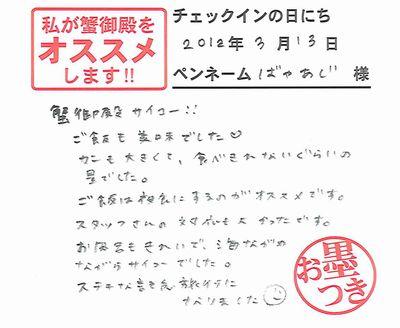 私が蟹御殿を
オススメ
します!!
チェックインの日にち
2012年3月13日
ペンネーム ばゃあじ 様
蟹御殿 サイコー!!
ご飯も美味でした♡
カニも大きくて、食べきれないぐらいの
量でした。
ご飯は雑炊にするのがオススメです。
スタッフさんの対応もよかったです。
お風呂もきれいで、海ながめ
ながらサイコーでした。
ステキな旅行に
なりました
お墨つき